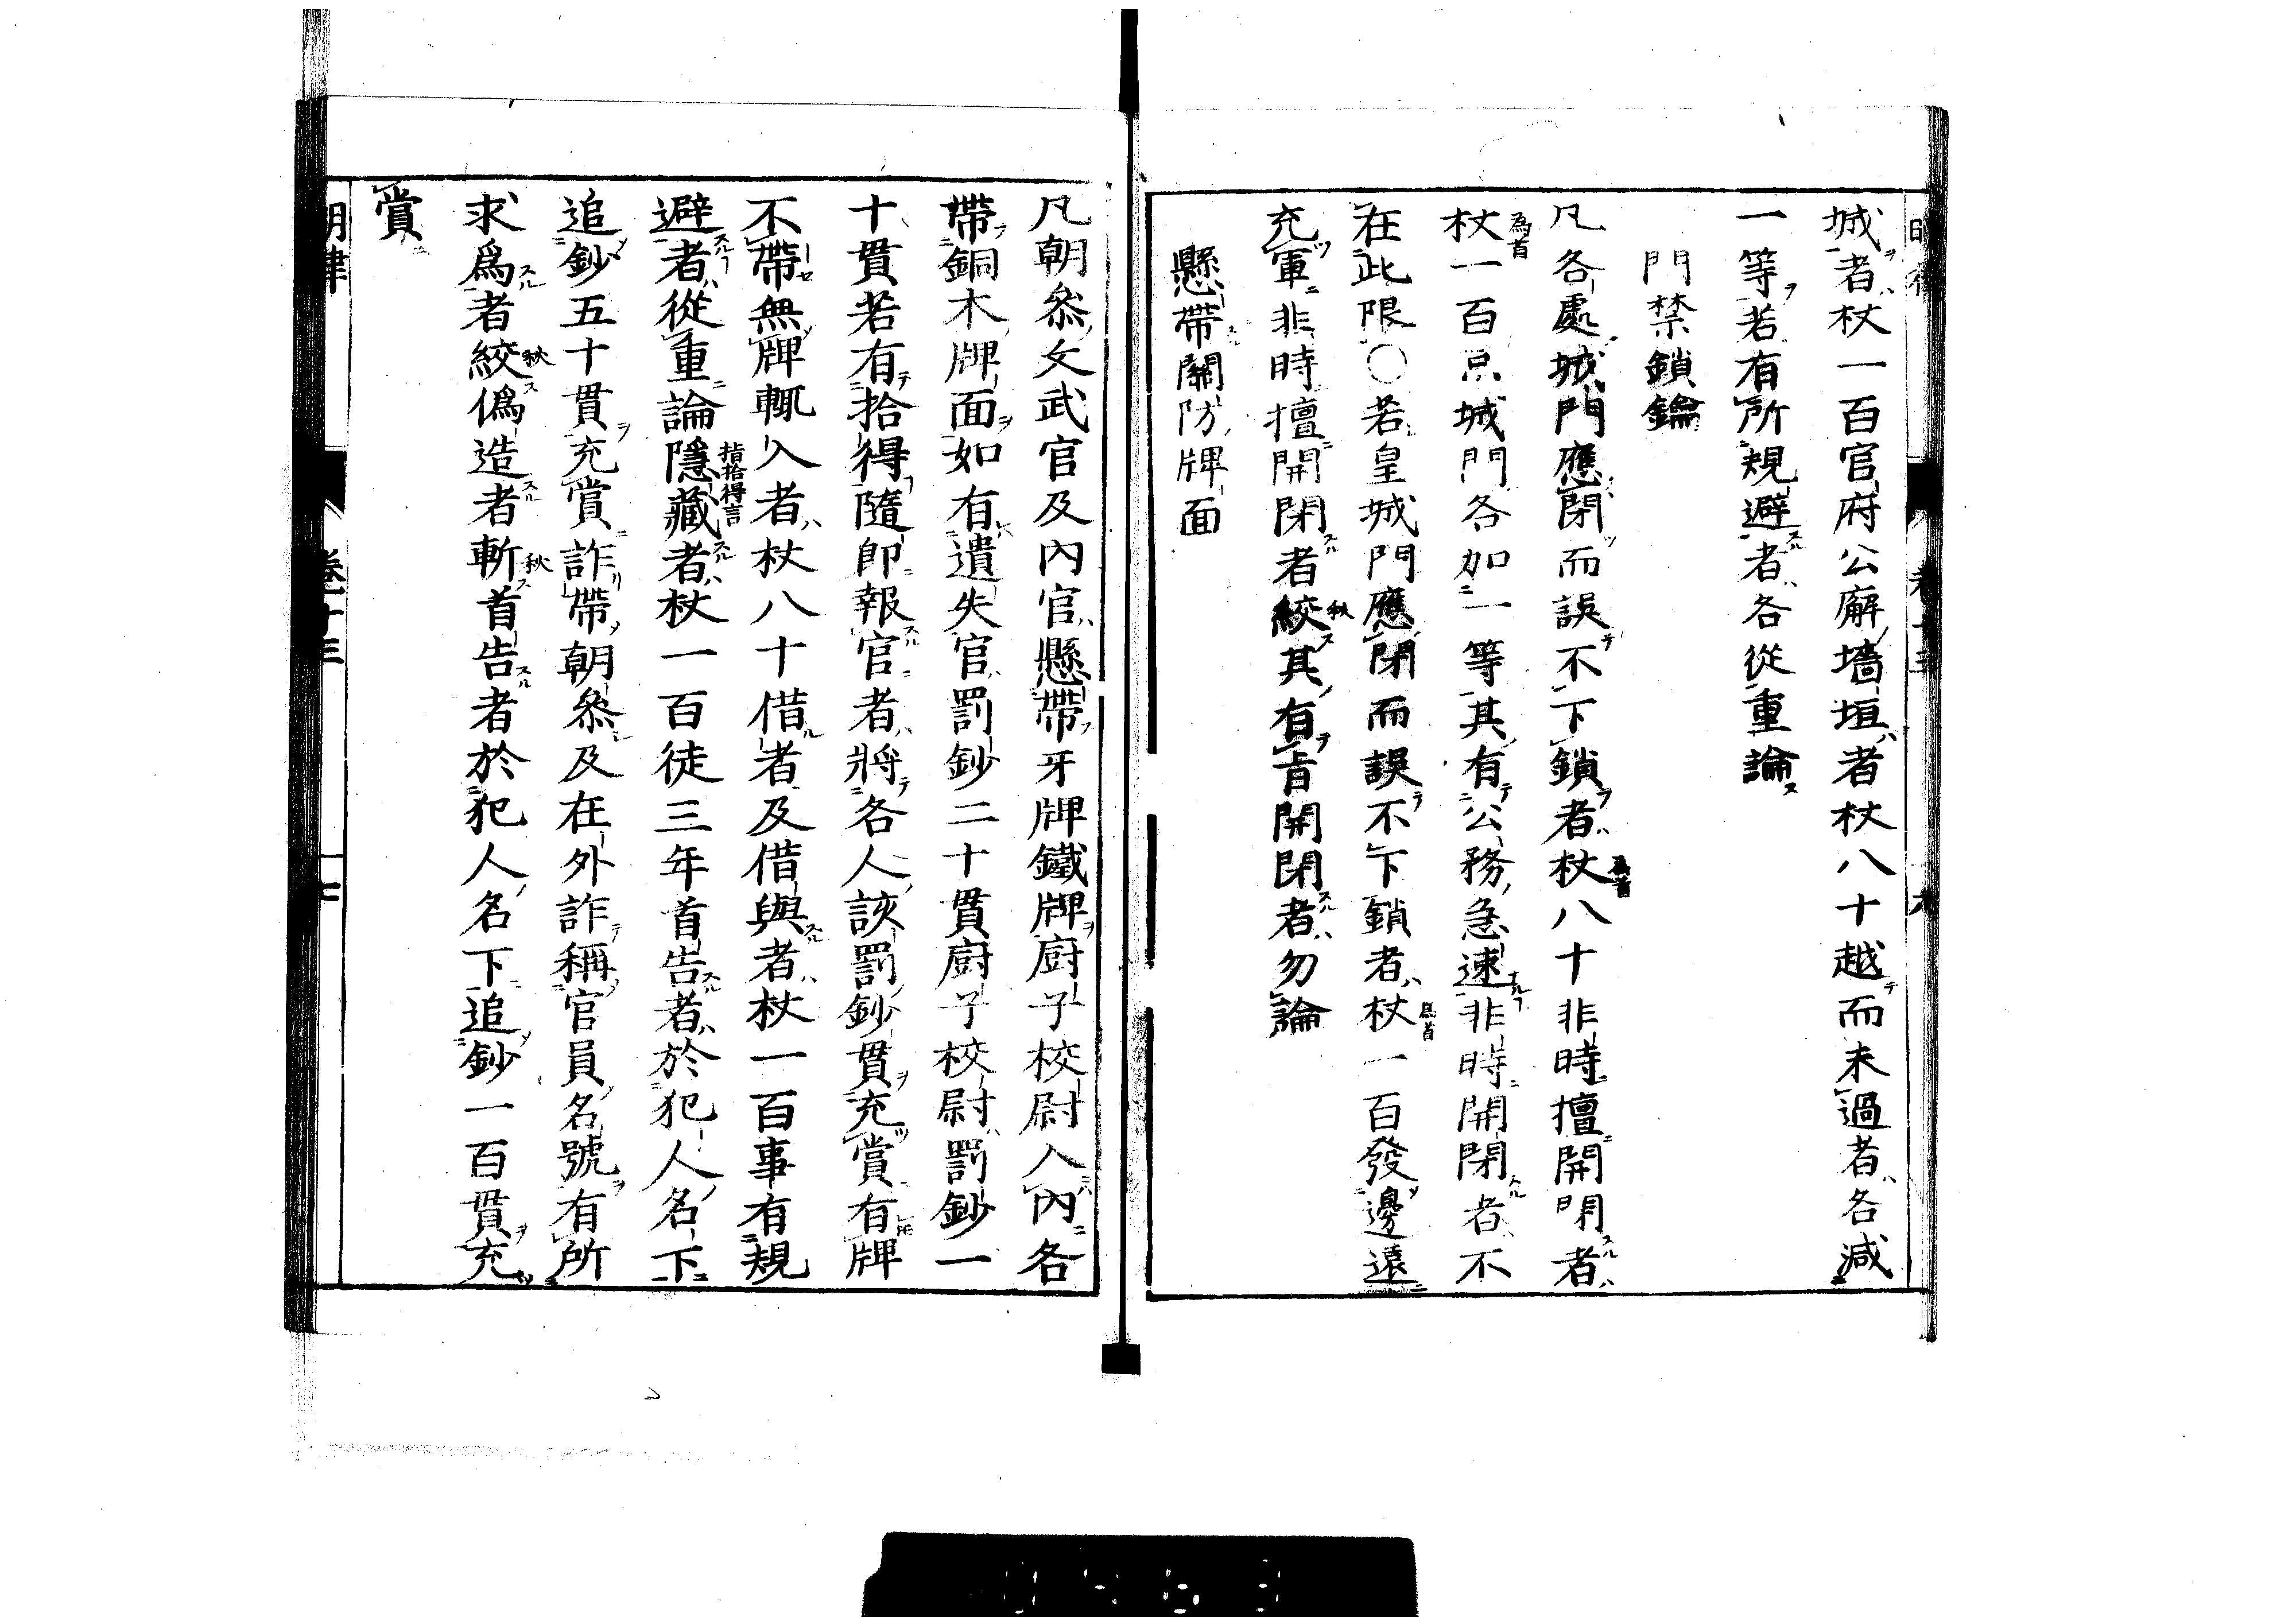 城者杖一百官府公廨墻垣者杖八十越而未過者各減
一等若有所規避者各從重論
門禁鎖鑰
凡各處城門應閉而誤不下鎖者杖八十非時擅開閉者
為首
杖一百京城門各加一等其有公務急速非時開閉者不
為首
在此限○若皇城門應閉而誤不下鎖者杖一百發邊遠
為首
充軍非時擅開閉者絞其有旨開閉者勿論
秋
懸帶關防牌面
凡朝叅文武官及內官懸帶牙牌鐵牌廚子校尉入內各
帶銅木牌面如有遺失官罰鈔二十貫廚子校尉罰鈔一
十貫若有拾得隨即報官者將各人該罰鈔貫充賞有牌
不帶無牌輒入者杖八十借者及借與者杖一百事有規
避者從重論隱藏者杖一百徒三年首告者於犯人名下
指拾得言
追鈔五十貫充賞詐帶朝叅及在外詐稱官員名號有所
求爲者絞僞造者斬首告者於犯人名下追鈔一百貫充
秋
秋
賞
明律
卷十三